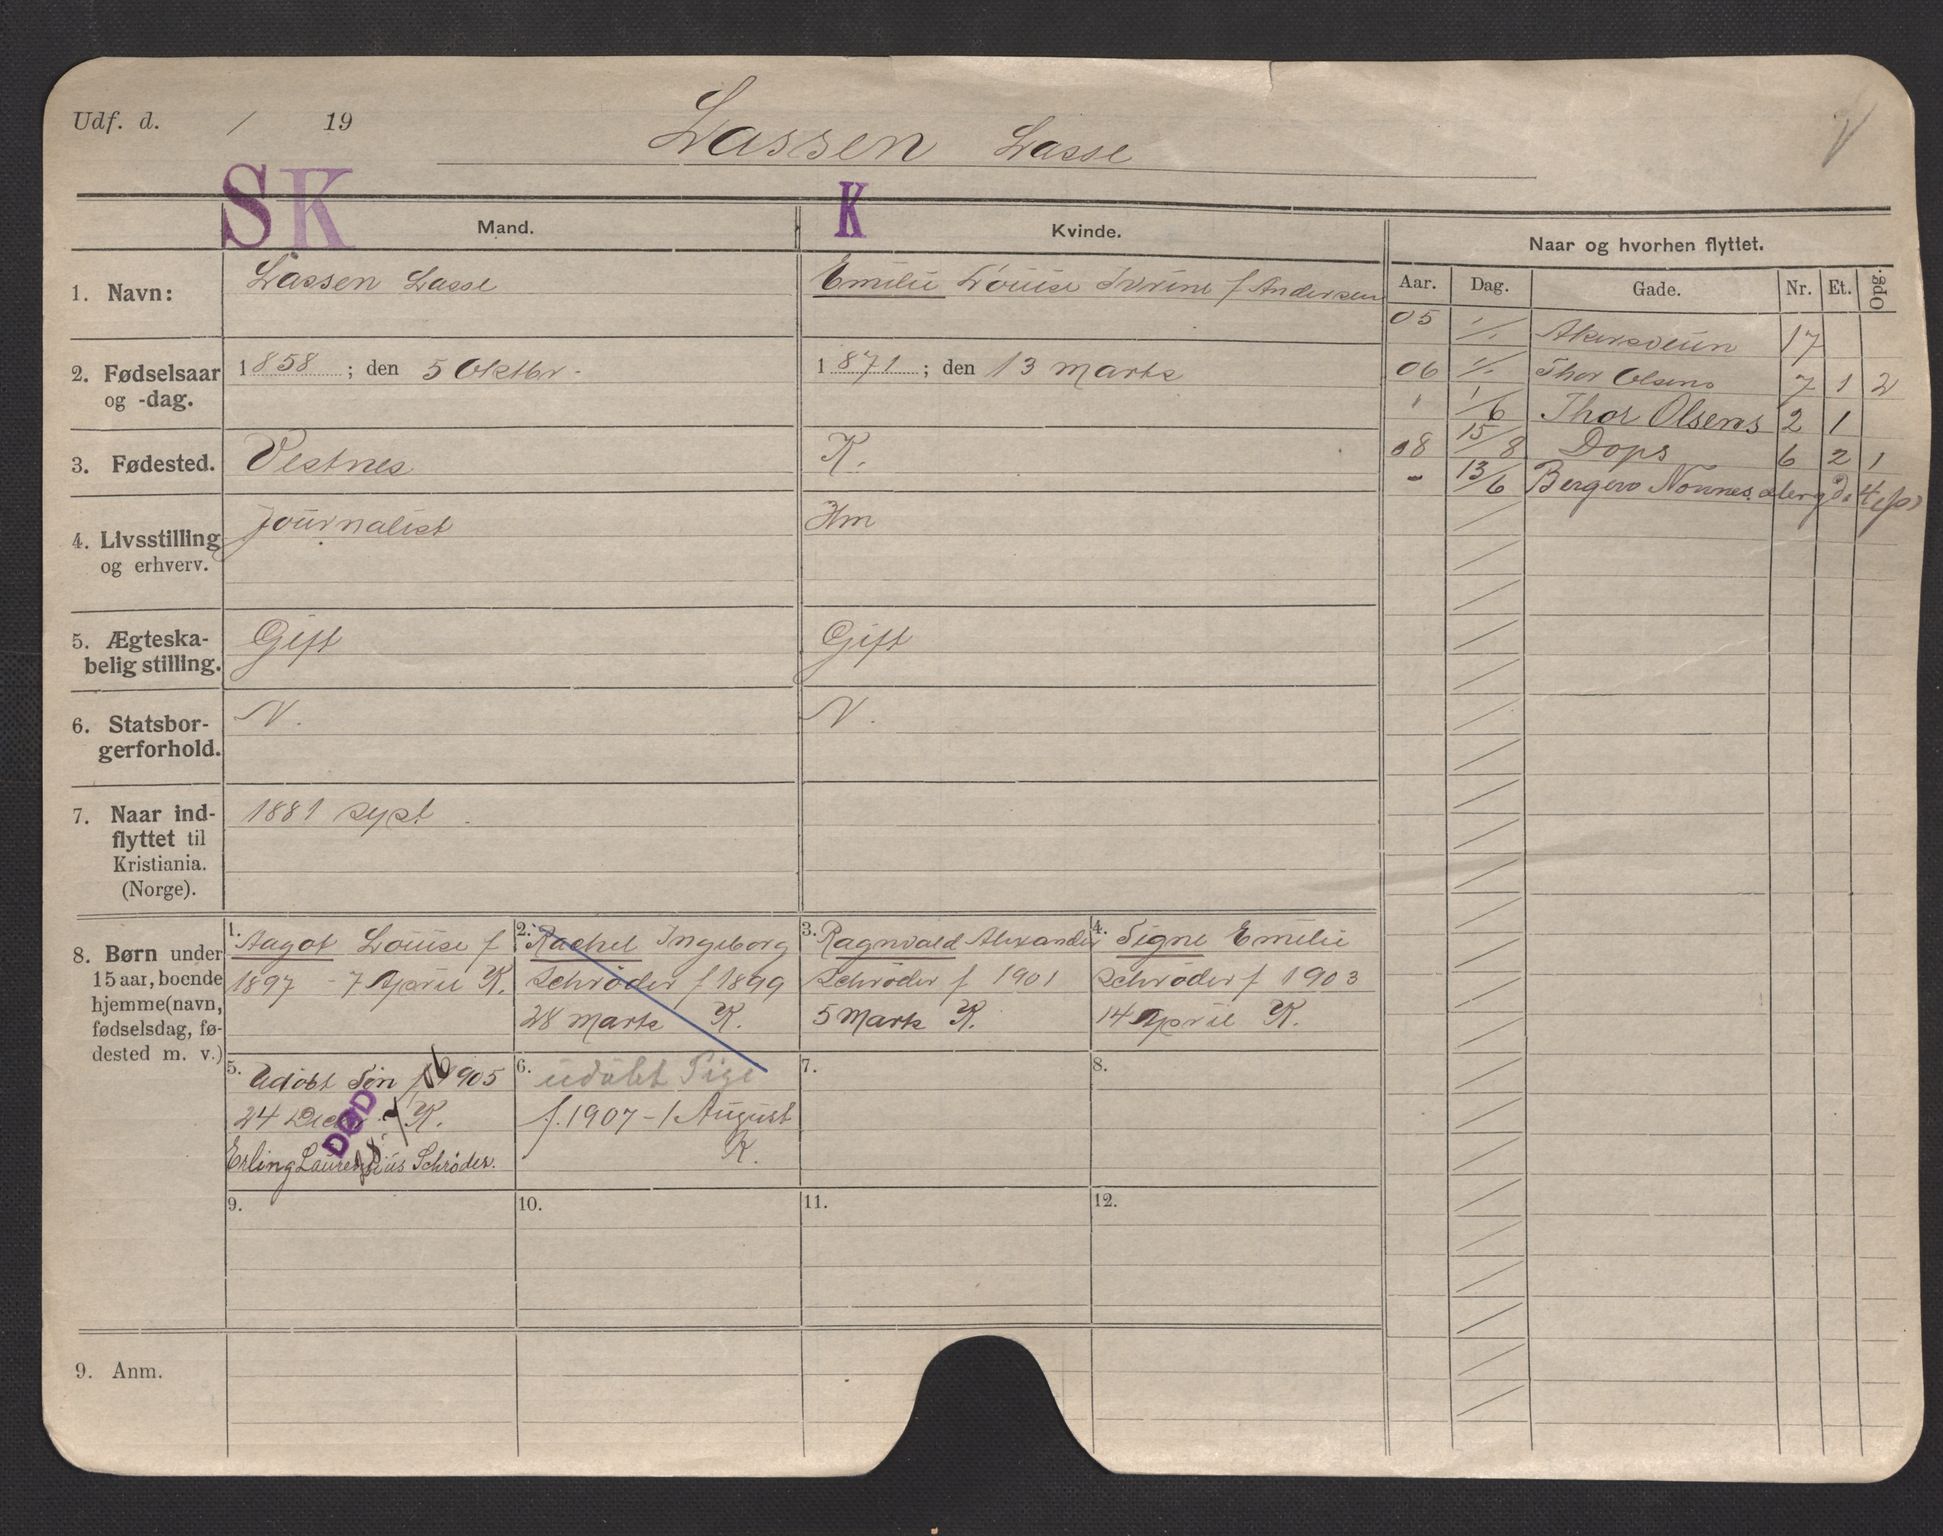 Udf. d. / 19
Lassen Lasse
SK
K
Mand.
Kvinde.
Naar og hvorhen flyttet.
Aar. Dag. Gade. Nr. Et. Opg.
1. Navn:
Lassen Lasse
Emilie Louise Severine f Andersen
2. Fødselsaar
og -dag.
1858; den 5 Oktbr.
1871; den 13 Marts
3. Fødested.
Vestnes
K.
4. Livsstilling
og erhverv.
Journalist
Hm
5. Ægteska-
belig stilling.
Gift
Gift
6. Statsbor-
gerforhold.
N.
N.
7. Naar ind-
flyttet til
Kristiania.
(Norge).
1881 sept.
05 1/1 Akersveien 17
06 1/1 Thor Olsens 7 1 2
" 1/6 Thor Olsens 2 1
08 15/8 Dops 6 2 1
- 13/6 Bergers Nonnes
8. Børn under
15 aar, boende
hjemme (navn,
fødselsdag, fø-
dested m. v.)
1. Aagot Louise f
1897 - 7 April K.
2. Rachel Ingeborg
Schrøder f 1899
28 Marts K.
3. Ragnvald Alexander
Schrøder f 1901
5 Marts K.
4. Signe Emilie
Schrøder f 1903
14 April K.
5. Udøbt Søn f 1905
24 Decbr. K.
DØD
Erling Laurensius Schrøder.
6. udøbt Pige
f. 1907 - 1 August
K.
7.
8.
9.
10.
11.
12.
9. Anm.